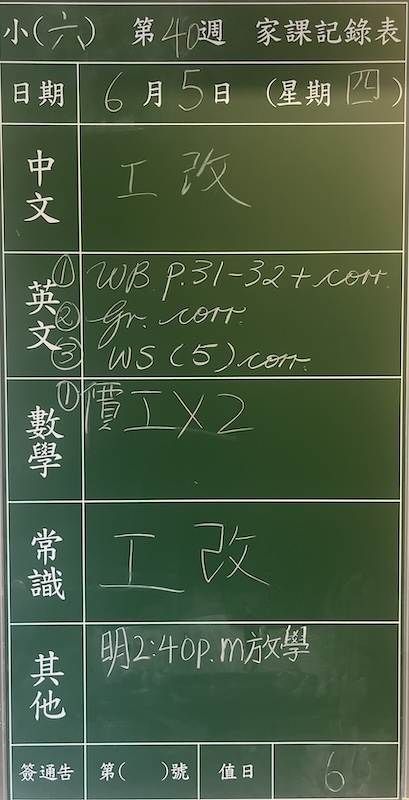 小(六) 第40週 家課記錄表
日期 6月5日 (星期四)
中文 工 改
英文 ① WB p.31-32 + corr.
② Gr. corr.
③ WS (5) corr.
數學 ① 價工X2
常識 工 改
其他 明2:40p.m放學
簽通告 第( )號 值日 6